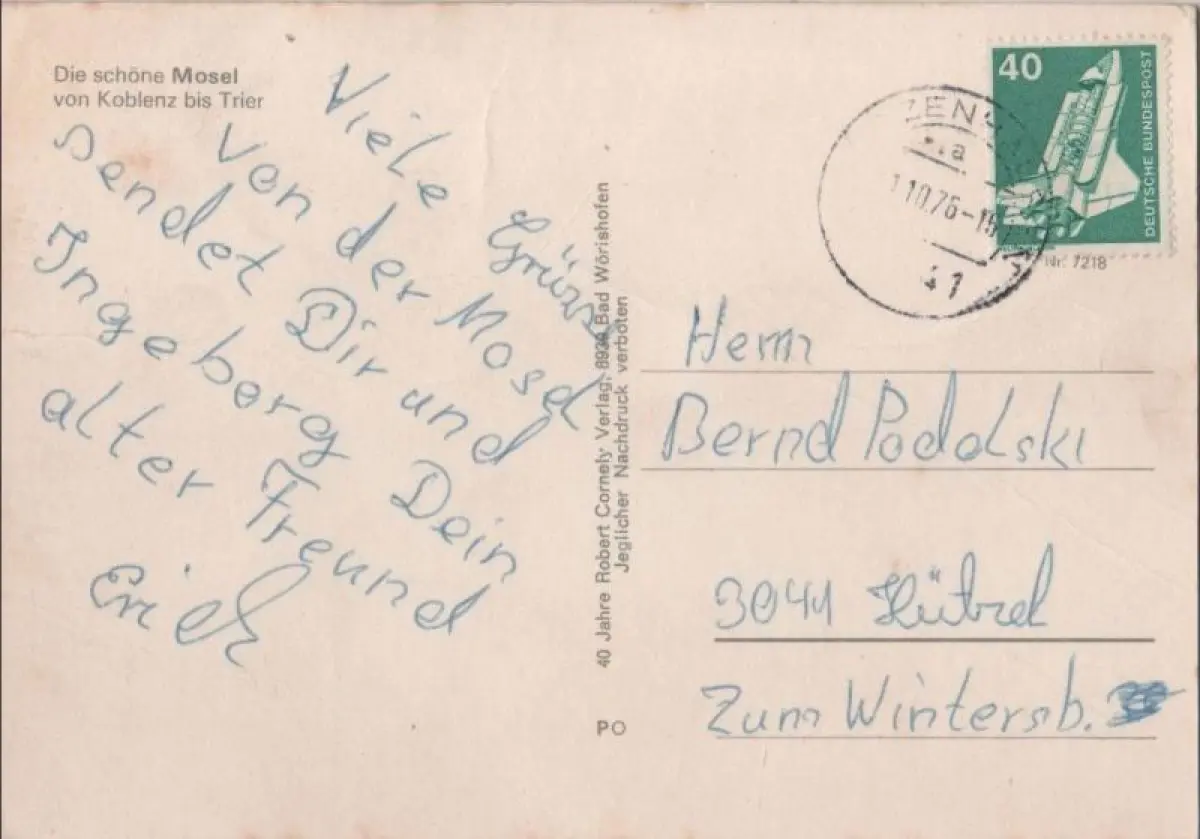 Die schöne Mosel
von Koblenz bis Trier
Viele Grüsse
von der Mosel
sendet Dir und
Ingeborg Dein
alter Freund
Erich
40 Jahre Robert Cornely Verlag, 8939 Bad Wörishofen
Jeglicher Nachdruck verboten
PO
40
DEUTSCHE BUNDESPOST
1.10.76-15
a
41
Nr. 7218
Herrn
Bernd Podolski
3041
Zum Wintersb.